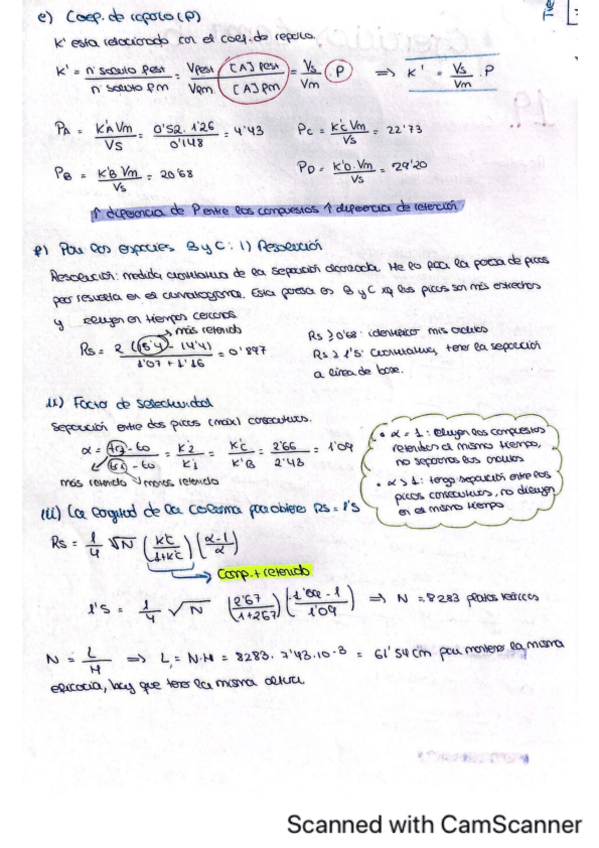 e) Coef. de reparto (P)
K' esta relacionado con el coef. de reparto.
K' = nº soluto fest / nº soluto fm = Vfest [A] fest / Vfm [A] fm = Vs / Vm · P ⇒ K' = Vs / Vm · P
PA = K'A Vm / Vs = 0'52 · 1'26 / 0'148 = 4'43 PC = K'C Vm / Vs = 22'73
PB = K'B Vm / Vs = 20'68 PD = K'D · Vm / Vs = 29'20
↑ diferencia de P entre los compuestos ↑ diferencia de retención
f) Para las especies B y C: i) Resolución
Resolución: medida cuantitativa de la separación alcanzada. Me lo para la pareja de picos
peor resuelta en el cromatograma. Esta pareja es B y C xq los picos son más estrechos
y eluyen en tiempos cercanos
→ más retenido
Rs = 2 ((15'4) - 14'4) / 1'07 + 1'16 = 0'897
Rs ≥ 0'68: identificar mis analitos
Rs ≥ 1'5: cuantitativa, tener la separación
a línea de base.
ii) Factor de selectividad
Separación entre dos picos (max) consecutivos.
α = tr2 - to / tr1 - to = K'2 / K'1 = K'C / K'B = 2'66 / 2'43 = 1'09
más retenido menos retenido
• α = 1: eluyen los compuestos
retenidos al mismo tiempo,
no separamos los analitos
• α > 1: tengo separación entre los
picos consecutivos, no eluyen
en el mismo tiempo
iii) La longitud de la columna para obtener Rs = 1'5
Rs = 1/4 √N (K'C / 1+K'C) (α-1 / α)
→ Comp. + retenido
1'5 = 1/4 √N (2'67 / (1+2'67)) (1'09 - 1 / 1'09) ⇒ N = 8283 platos teóricos
N = L / H ⇒ L = N·H = 8283 · 7'43 · 10⁻³ = 61'54 cm para mantener la misma
eficacia, hay que tener la misma altura
Scanned with CamScanner